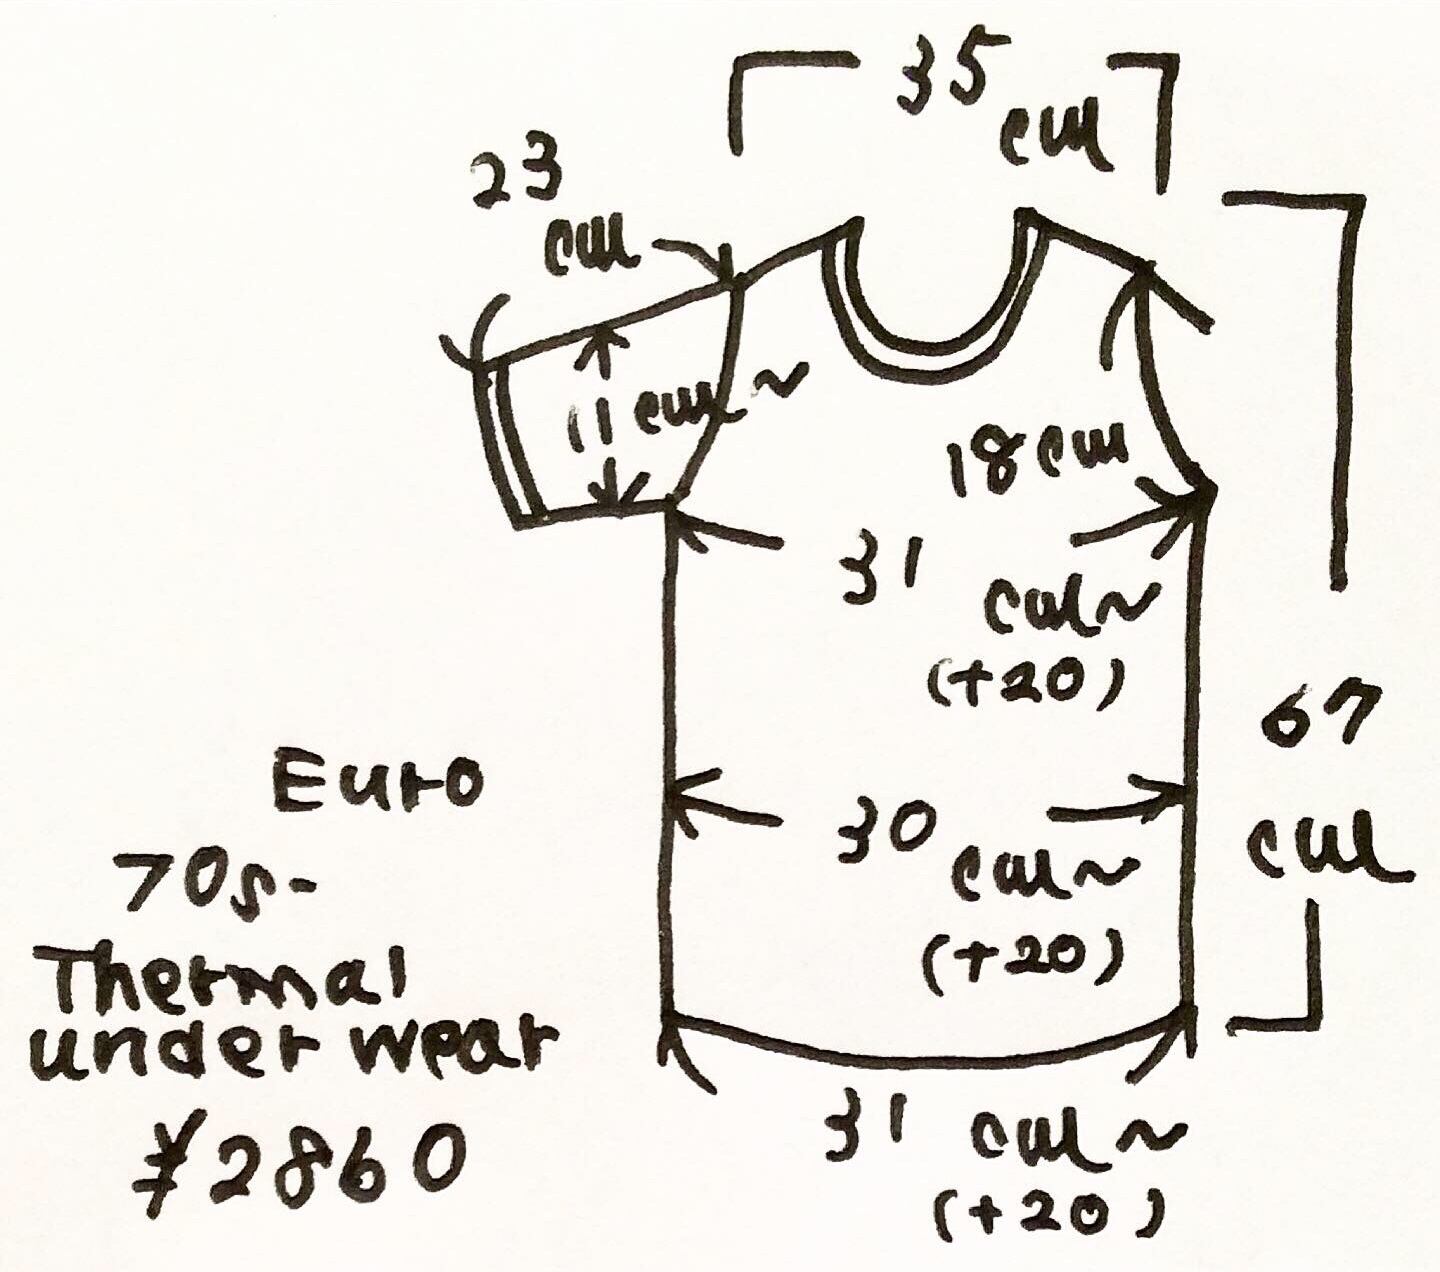 35 cm
23 cm
11cm~
18cm
31 cm~
(+20)
67 cm
30 cm~
(+20)
Euro
70s-
Thermal
under wear
¥2860
31 cm~
(+20)